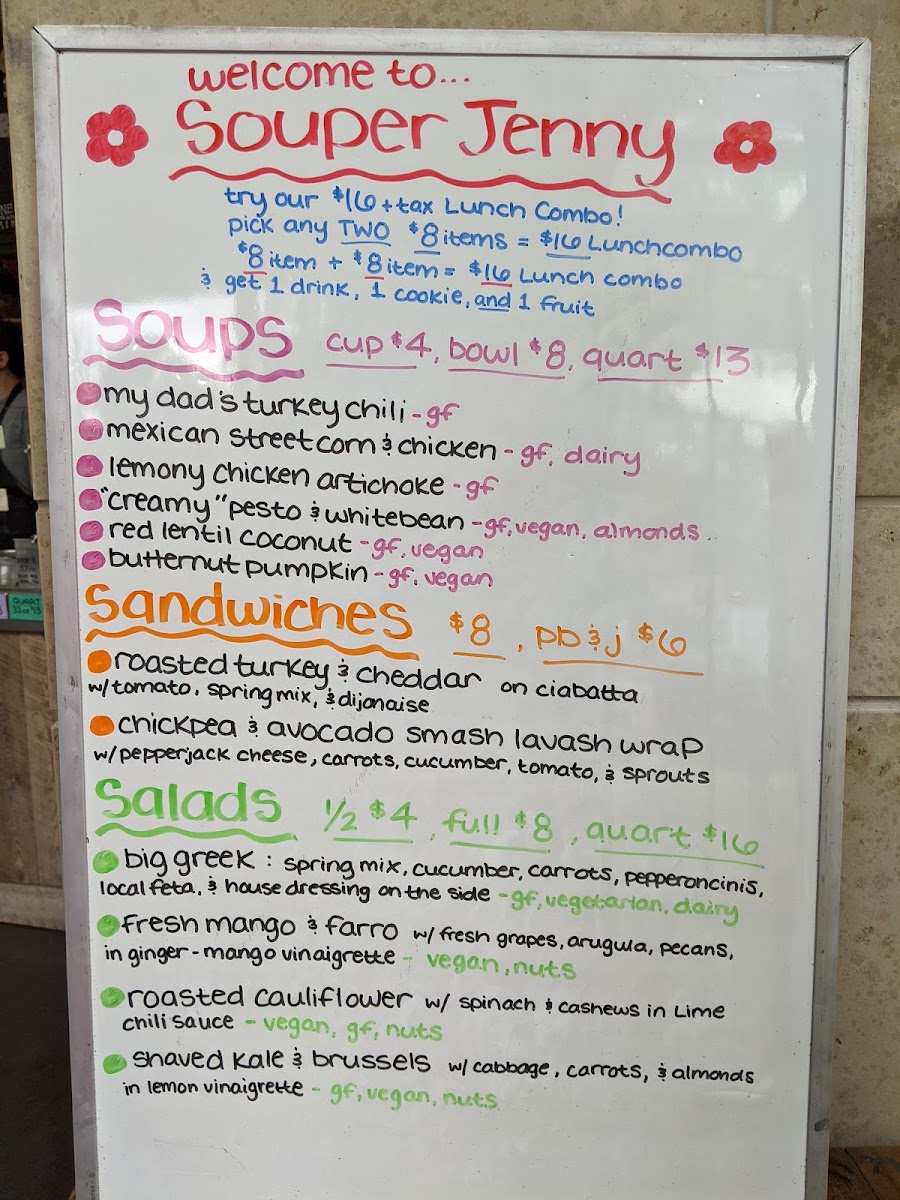 welcome to...
Souper Jenny
try our $16 + tax Lunch Combo!
pick any TWO $8 items = $16 Lunch combo
$8 item + $8 item = $16 Lunch combo
& get 1 drink, 1 cookie, and 1 fruit
Soups cup $4, bowl $8, quart $13
my dad's turkey chili - gf
mexican street corn & chicken - gf, dairy
lemony chicken artichoke - gf
"creamy" pesto & white bean - gf, vegan, almonds
red lentil coconut - gf, vegan
butternut pumpkin - gf, vegan
Sandwiches $8, pb & j $6
roasted turkey & cheddar on ciabatta
w/ tomato, spring mix, & dijonaise
chickpea & avocado smash lavash wrap
w/ pepperjack cheese, carrots, cucumber, tomato, & sprouts
Salads 1/2 $4, full $8, quart $16
big greek : spring mix, cucumber, carrots, pepperoncinis,
local feta, & house dressing on the side - gf, vegetarian, dairy
fresh mango & farro w/ fresh grapes, arugula, pecans,
in ginger - mango vinaigrette - vegan, nuts
roasted cauliflower w/ spinach & cashews in Lime
chili sauce - vegan, gf, nuts
shaved kale & brussels w/ cabbage, carrots, & almonds
in lemon vinaigrette - gf, vegan, nuts
QUART